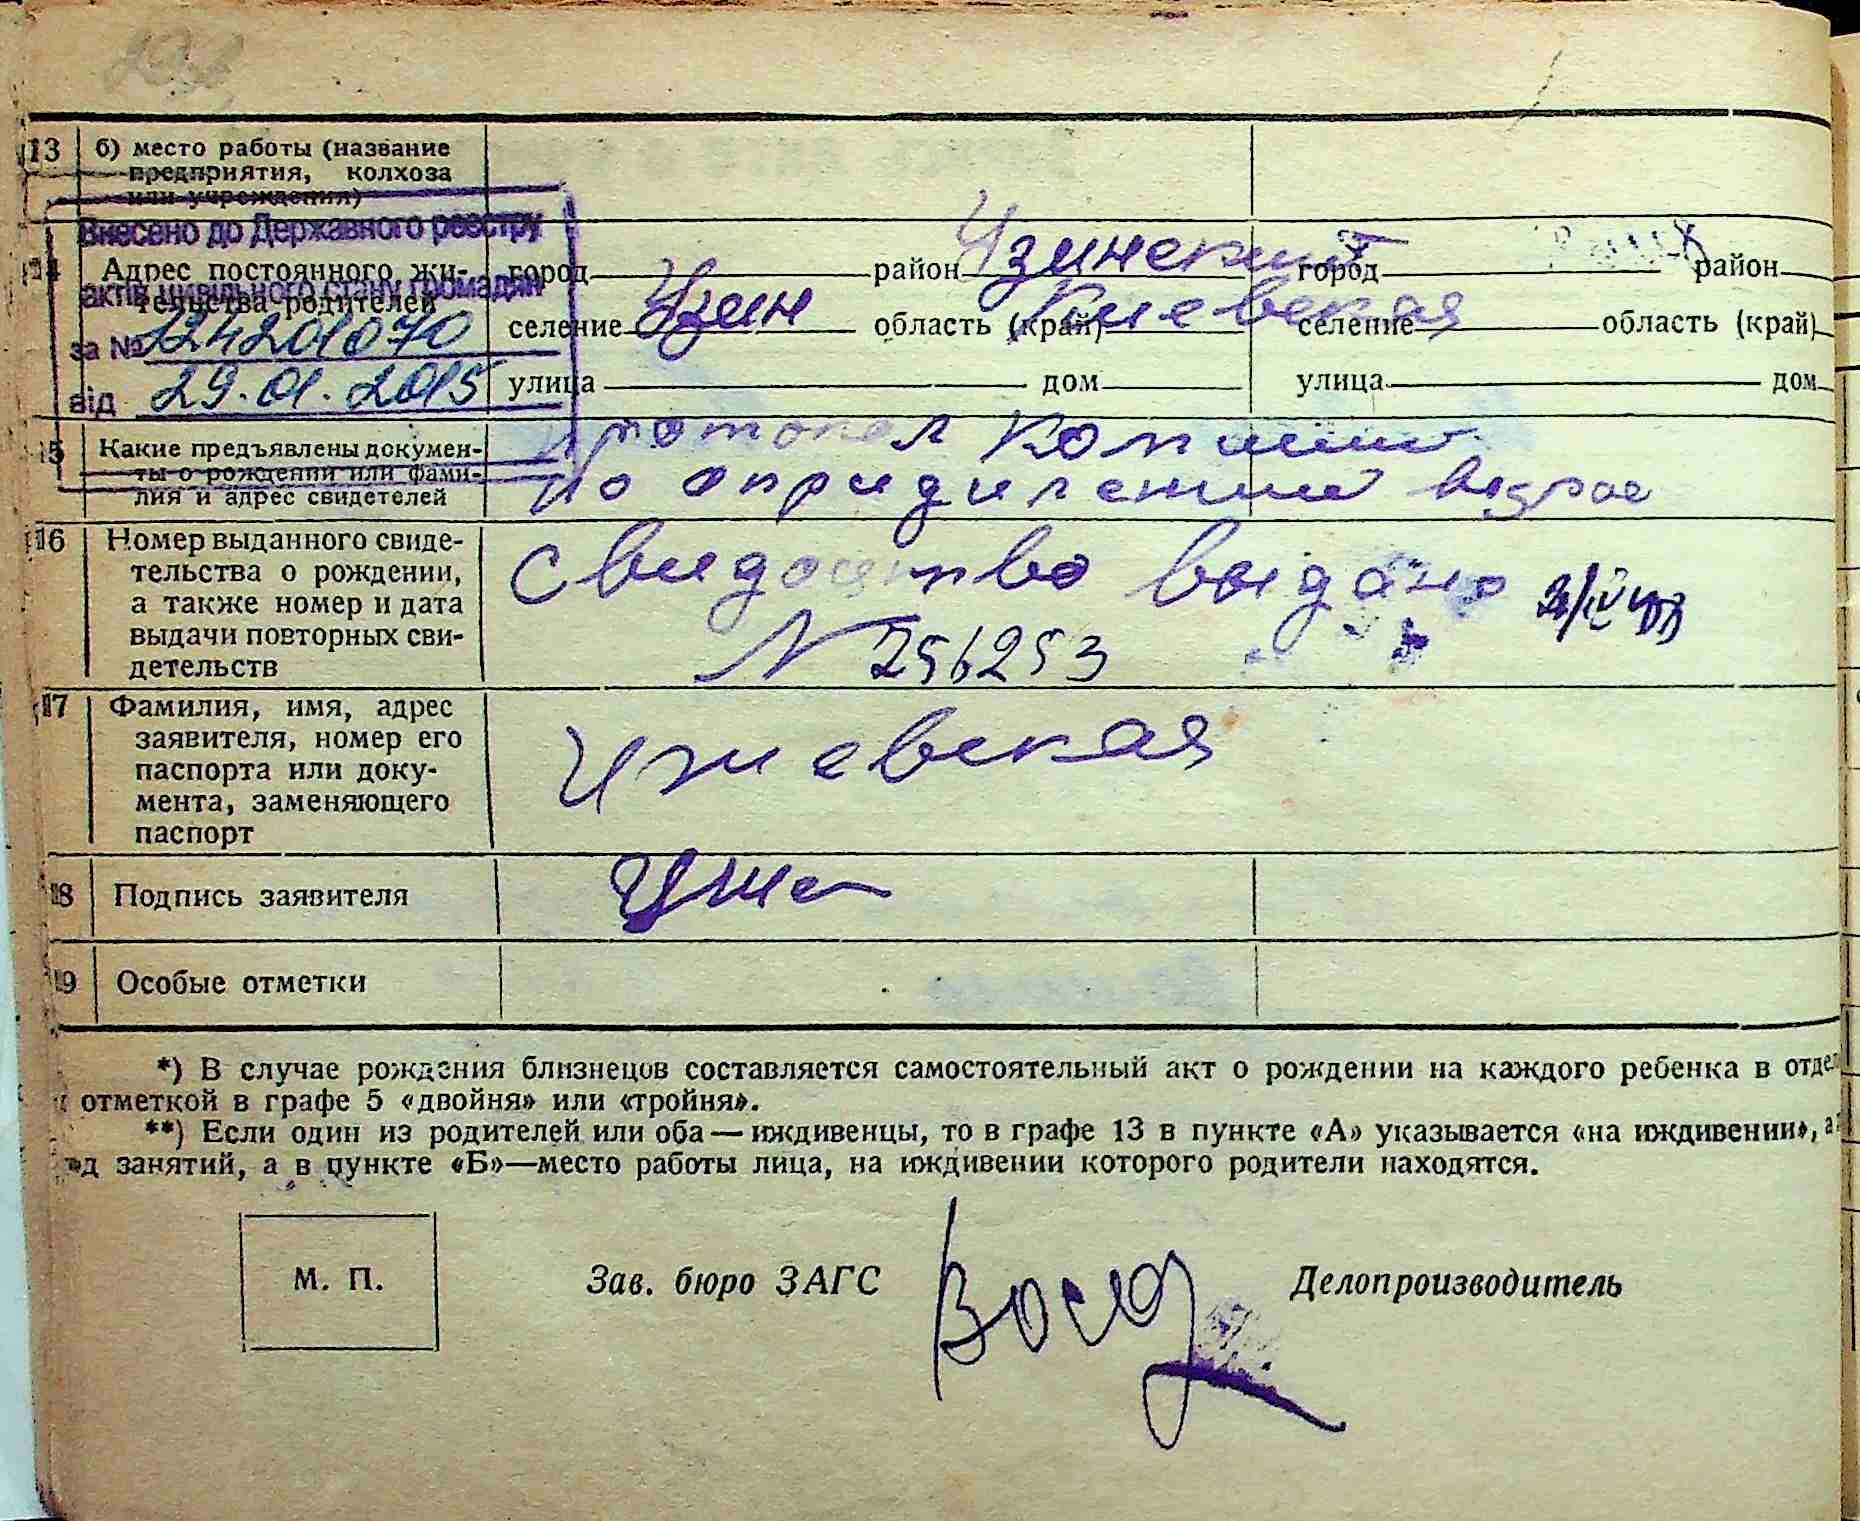 13 б) место работы (название
предприятия, колхоза
или учреждения)
Внесено до Державного реєстру
актів цивільного стану громадян
за № 124201070
від 29.01.2015
14 Адрес постоянного жи-
тельства родителей
город район Узинский город район
селение Узин область (край) Киевская селение область (край)
улица дом улица дом
15 Какие предъявлены докумен-
ты о рождении или фами-
лия и адрес свидетелей
протокол комисии
по опридилению возрос
16 Номер выданного свиде-
тельства о рождении,
а также номер и дата
выдачи повторных сви-
детельств
Свидоцтво выдано
N 256253
17 Фамилия, имя, адрес
заявителя, номер его
паспорта или доку-
мента, заменяющего
паспорт
18 Подпись заявителя
19 Особые отметки
*) В случае рождения близнецов составляется самостоятельный акт о рождении на каждого ребенка в
отметкой в графе 5 «двойня» или «тройня».
**) Если один из родителей или оба — иждивенцы, то в графе 13 в пункте «А» указывается «на иждивении»,
занятий, а в пункте «Б»—место работы лица, на иждивении которого родители находятся.
М. П. Зав. бюро ЗАГС Делопроизводитель